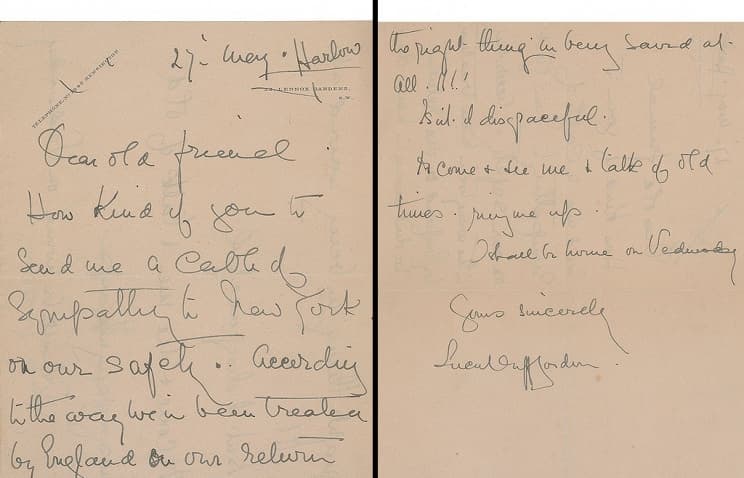 27 May. Harlow
TELEPHONE, KENSINGTON
LENNOX GARDENS,
S.W.
Dear old friend.
How kind of you to
send me a cable of
sympathy to New York
on our safety.. According
to the way we've been treated
by England on our return
the right thing in being saved at
all. !!!!
Isn't it disgraceful.
come & see me & talk of old
times. ring me up.
I shall be home on Wednesday
Yours sincerely
Lucy Duff Gordon.